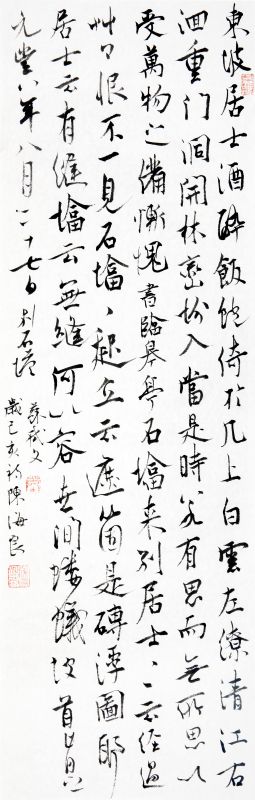 東坡居士酒醉飯飽倚於几上白雲左潦清江右
洄重门洞開林巒坌入當是時若有思而無所思以
受萬物之備慚愧書臨皋亭石塔来别居士、、云經過
艸艸恨不一見石塔、起立云遮箇是磚浮圖耶
居士云有縫塔云無縫何以容世间螻蟻坡首肯之
元豐八年八月二十七日别石塔
蘇軾文
歲己亥秋陳海良